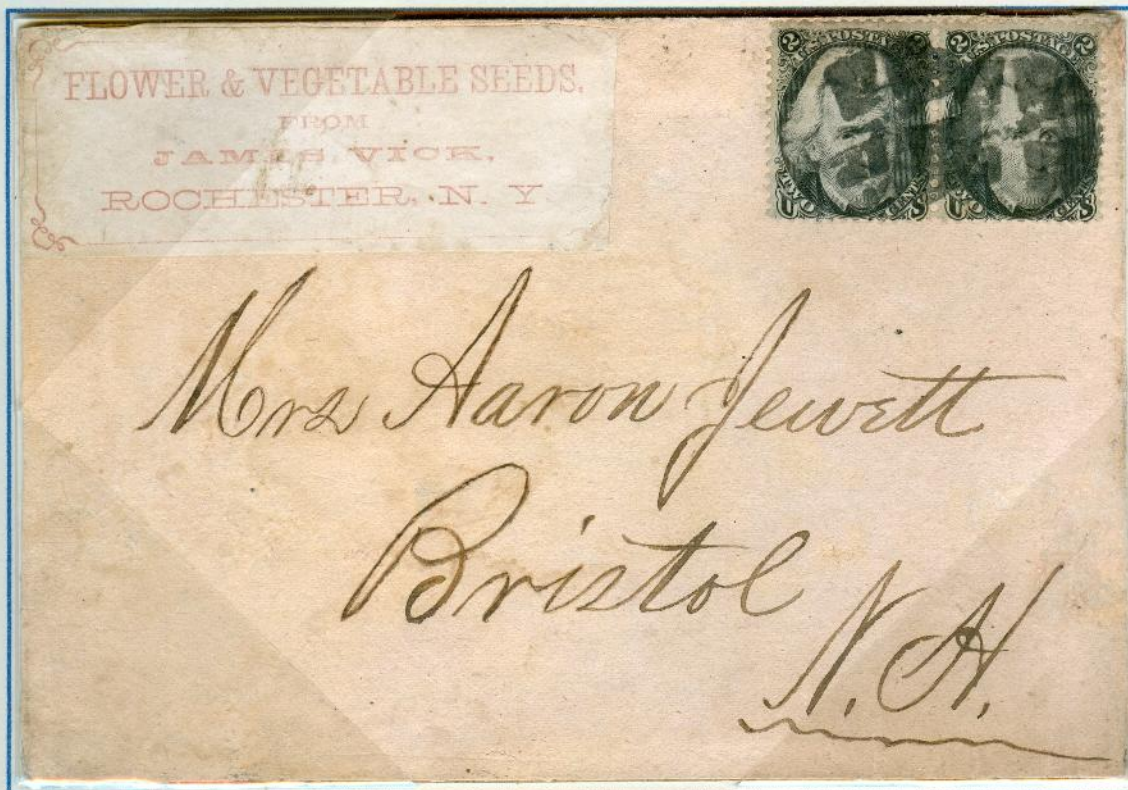 FLOWER & VEGETABLE SEEDS,
FROM
JAMES VICK,
ROCHESTER, N. Y
2 U.S. POSTAGE 2
2 U.S. POSTAGE 2
Mrs Aaron Jewett
Bristol
N. H.